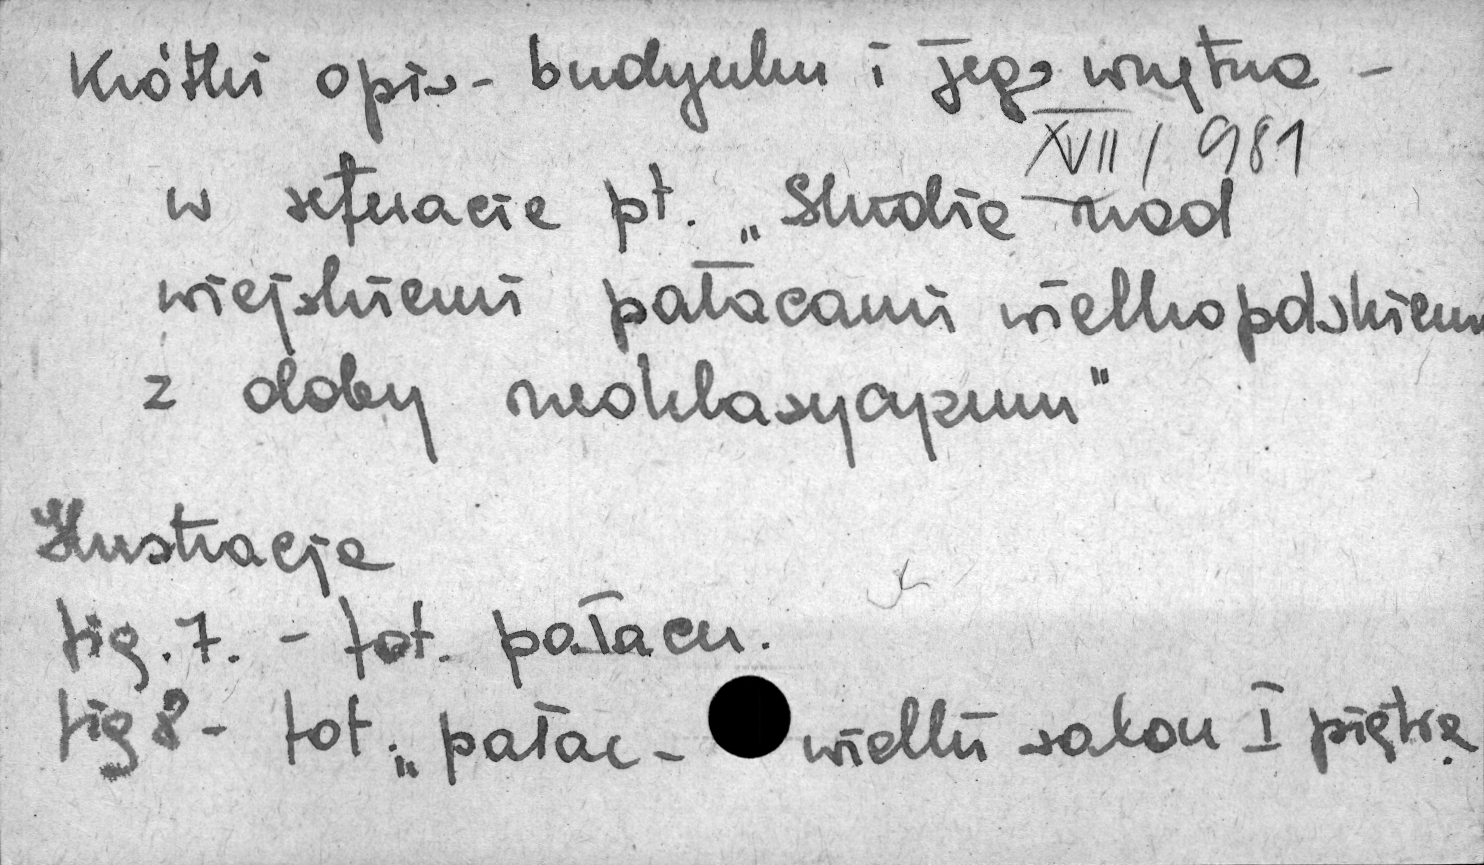 Krótki opis - budynku i jego wnętrza -
XVII / 981
w referacie pt. „Studia nad
wiejskiemi pałacami wielkopolskiemi
z doby neoklasycyzmu"
Ilustracja
fig. 7. - fot. pałacu.
fig 8 - fot. „pałac - wielki salon I piętra